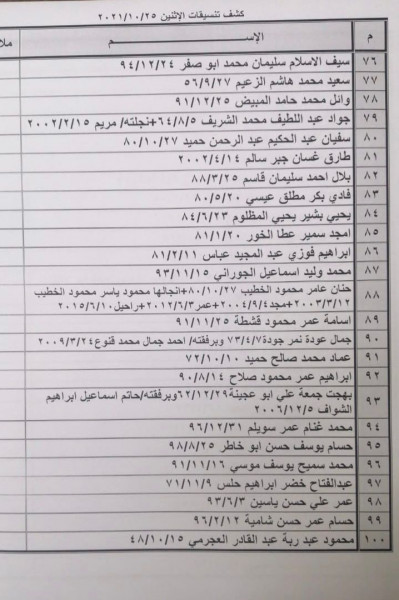 كشف تنسيقات الإثنين ٢٠٢١/١٠/٢٥
م الإســـم ملا
٧٦ سيف الاسلام سليمان محمد ابو صفر ٩٤/١٢/٢٤
٧٧ سعيد محمد هاشم الزعيم ٥٦/٩/٢٧
٧٨ وائل محمد حامد المبيض ٩١/١٢/٢٥
٧٩ جواد عبد اللطيف محمد الشريف ٦٤/٨/٥+نجلته/ مريم ٢٠٠٢/٢/١٥
٨٠ سفيان عبد الحكيم عبد الرحمن حميد ٨٠/١٠/٢٧
٨١ طارق غسان جبر سالم ٢٠٠٢/٤/١٤
٨٢ بلال احمد سليمان قاسم ٨٨/٣/٢٥
٨٣ فادي بكر مطلق عيسي ٨٠/٥/٢٠
٨٤ يحيي بشير يحيي المظلوم ٨٤/٦/٢٣
٨٥ امجد سمير عطا الخور ٨١/١/٢٠
٨٦ ابراهيم فوزي عبد المجيد عباس ٨١/٢/١١
٨٧ محمد وليد اسماعيل الجوراني ٩٣/١١/١٥
٨٨ حنان عامر محمود الخطيب ٨٠/١٠/٢٧+انجالها محمود ياسر محمود الخطيب
٢٠٠٣/٣/١٢+مجد٢٠٠٤/٩/٤+عمر٢٠١٢/٦/٣+راحيل٢٠١٥/٦/١٠
٨٩ اسامة عمر محمود قشطة ٩١/١١/٢٥
٩٠ جمال عودة نمر جودة٧٣/٤/٧ وبرفقته/ احمد جمال محمد قنوع٢٠٠٩/٣/٢٤
٩١ عماد محمد صالح حميد ٧٢/١٠/١٠
٩٢ ابراهيم عمر محمود صلاح ٩٠/٨/١٤
٩٣ بهجت جمعة علي ابو عجينة٦٢/١٢/٢٩وبرفقته/حاتم اسماعيل ابراهيم
الشواف ٢٠٠٦/١٢/٥
٩٤ محمد غنام عمر سويلم ٩٦/١٢/٣١
٩٥ حسام يوسف حسن ابو خاطر ٩٨/٨/٢٥
٩٦ محمد سميح يوسف موسي ٩١/١١/١٦
٩٧ عبدالفتاح خضر ابراهيم حلس ٧١/١١/٩
٩٨ عمر علي حسن ياسين ٩٣/٦/٣
٩٩ حسام عمر حسن شامية ٩٦/٢/١٢
١٠٠ محمود عبد ربة عبد القادر العجرمي ٤٨/١٠/١٥